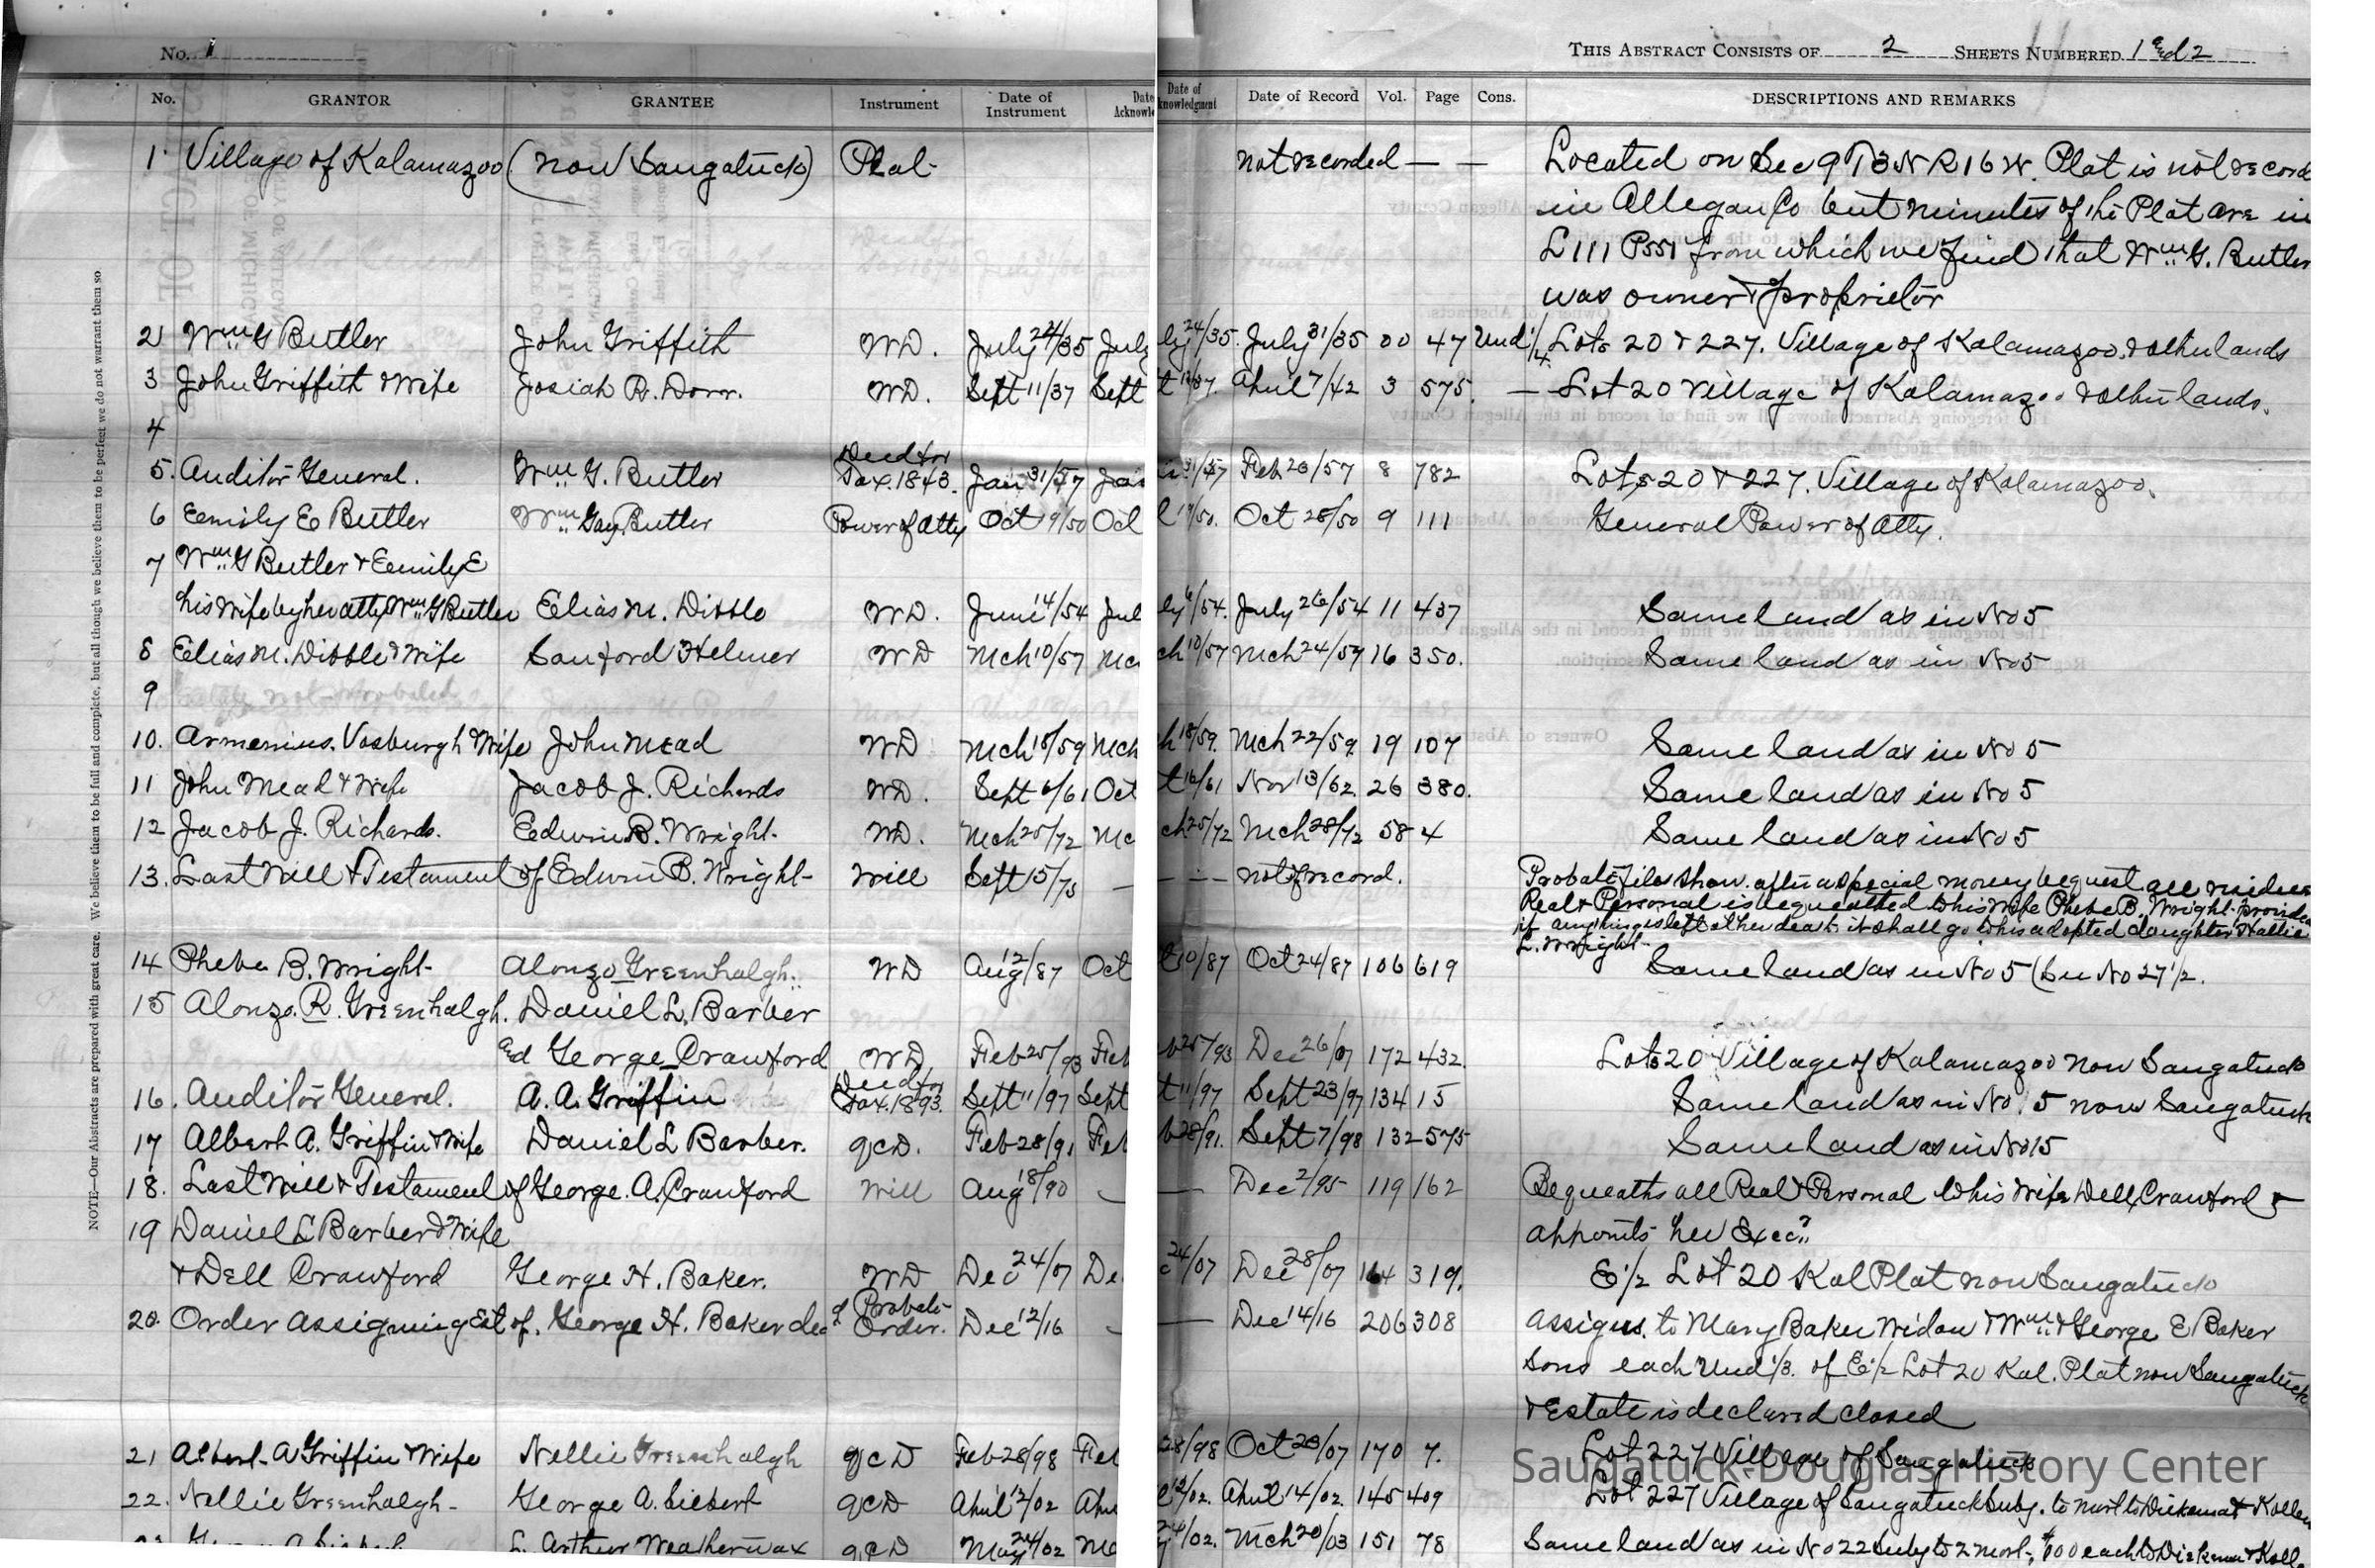 No. 1
THIS ABSTRACT CONSISTS OF 2 SHEETS NUMBERED 1 and 2
No. GRANTOR GRANTEE Instrument Date of Instrument Date Acknowle Date of knowledgment Date of Record Vol. Page Cons. DESCRIPTIONS AND REMARKS
1 Village of Kalamazoo (now Saugatuck) Plat- not recorded — — Located on Sec 9 T3N R16W. Plat is not record
in Allegan Co but minutes of the Plat are in
L 111 P551 from which we find that Wm G. Butler
was owner & proprietor
2 Wm G Butler John Griffith WD. July 24/35 July ly 24/35. July 31/35 00 47 Und 1/4 Lots 20 & 227. Village of Kalamazoo. & other lands
3 John Griffith & Wife Josiah R. Dorr. WD. Sept 11/37 Sept t 12/37. April 7/42 3 575. — Lot 20 Village of Kalamazoo & other lands.
4
5. Auditor General. Wm G. Butler Deed for Tax. 1843. Jan 31/57 Jan 31/57 Feb 20/57 8 782 Lots 20 & 227. Village of Kalamazoo.
6 Emily E Butler Wm Gay Butler Power of Atty Oct 19/50 Oct t 19/50. Oct 28/50 9 111 General Power of Atty.
7 Wm G Butler & Emily E
his wife by her atty Wm G Butler Elias M. Dibble WD. June 14/54 Jul ly 6/54. July 26/54 11 437 Same land as in No 5
8 Elias M. Dibble & Wife Sanford Helmer WD Mch 10/57 Mc ch 10/57 Mch 24/57 16 350. Same land as in No 5
9
10. Armenius. Vosburgh & Wife John Mead WD Mch 18/59 Mch h 18/59. Mch 22/59. 19 107 Same land as in No 5
11 John Mead & Wife Jacob J. Richards WD. Sept 6/61 Oct t 16/61 Nov 13/62. 26 380. Same land as in No 5
12 Jacob J. Richards. Edwin B. Wright- WD. Mch 25/72 Mc ch 25/72 Mch 28/72 58 4 Same land as in No 5
13. Last Will & Testament of Edwin B. Wright- Will Sept 15/75 — — — not of record. Probate Files show. after a special money bequest all residue
Real & Personal is bequeathed to his wife Phebe B. Wright- provided
if anything is left at her death it shall go to his adopted daughter Hattie
L. Wright-
14 Phebe B. Wright- Alonzo Greenhalgh. WD Aug 12/87 Oct t 10/87 Oct 24/87 106 619 Same land as in No 5 (See No 27 1/2.
15 Alonzo. R. Greenhalgh. Daniel L. Barber
and George Crawford WD Feb 25/93 Feb b 25/93 Dec 26/07 172 432. Lot 20 Village of Kalamazoo now Saugatuck
16. Auditor General. A. A. Griffin Deed for Tax. 1893. Sept 11/97 Sept t 11/97 Sept 23/97 134 15 Same land as in No. 5 now Saugatuck
17 Albert A. Griffin & Wife Daniel L Barber. QCD. Feb 28/91 Feb b 28/91. Sept 7/98 132 575 Same land as in No 15
18. Last Will & Testament of George. A. Crawford Will Aug 18/90 — — Dec 2/95 119 162 Bequeaths all Real & Personal to his wife Dell Crawford &
appoints her Execx
19 Daniel L Barber & Wife
& Dell Crawford George H. Baker. WD Dec 24/07 De c 24/07 Dec 28/07 164 319. E 1/2 Lot 20 Kal Plat now Saugatuck
20. Order assigning Est of. George H. Baker dec'd Probate Order. Dec 12/16 — — Dec 14/16 206 308 Assigns. to Mary Baker Widow & Wm & George E Baker
Sons each Und 1/3. of E 1/2 Lot 20 Kal. Plat now Saugatuck
& Estate is declared closed
21 Albert- A Griffin & Wife Nellie Greenhalgh QCD Feb 28/98 Feb 28/98 Oct 20/07 170 7. Lot 227 Village of Saugatuck
22. Nellie Greenhalgh- George A. Siebert QCD April 12/02 Apr l 12/02. April 14/02. 145 409 Lot 227 Village of Saugatuck Subj. to mort to Diekema & Kollen
L. Arthur Weatherwax QCD May 24/02 Ma 24/02. Mch 20/03 151 78 Same land as in No 22 Subj to 2 mort. $100 each to Diekema & Koll
NOTE—Our Abstracts are prepared with great care. We believe them to be full and complete, but all though we believe them to be perfect we do not warrant them so
Saugatuck-Douglas History Center